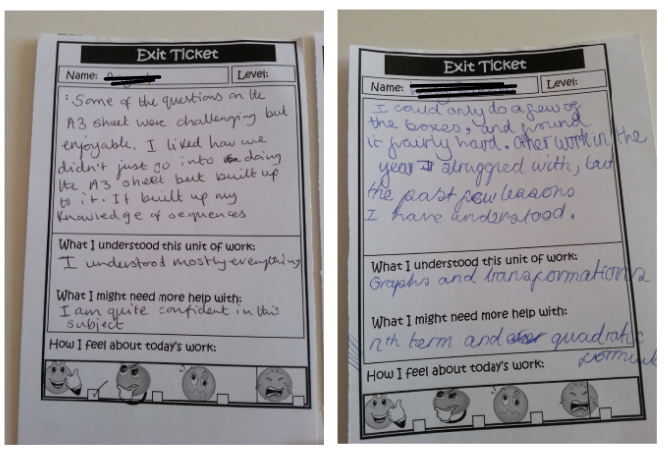 Exit Ticket
Name:
Level:
: Some of the questions on the
A3 sheet were challenging but
enjoyable. I liked how we
didn't just go into doing
the A3 sheet but built up
to it. It built up my
knowledge of sequences
What I understood this unit of work:
I understood mostly everything
What I might need more help with:
I am quite confident in this
subject
How I feel about today's work:
Exit Ticket
Name:
Level:
I could only do a few of
the boxes, and found
it fairly hard. Other work in the
year I struggled with, but
the past few lessons
I have understood.
What I understood this unit of work:
Graphs and transformations
What I might need more help with:
nth term and quadratic
formula
How I feel about today's work: